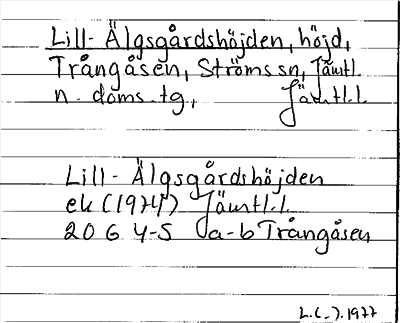 Lill-Älgsgårdshöjden, höjd,
Trångåsen, Ströms sn, Jämtl.
n. doms.tg., Jämtl.l.
Lill-Älgsgårdshöjden
ek (1974) Jämtl.l.
20 G 4-5 a-b Trångåsen
1977